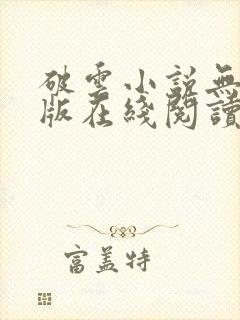 破雲小說無
版在綫閱讀
富盖特